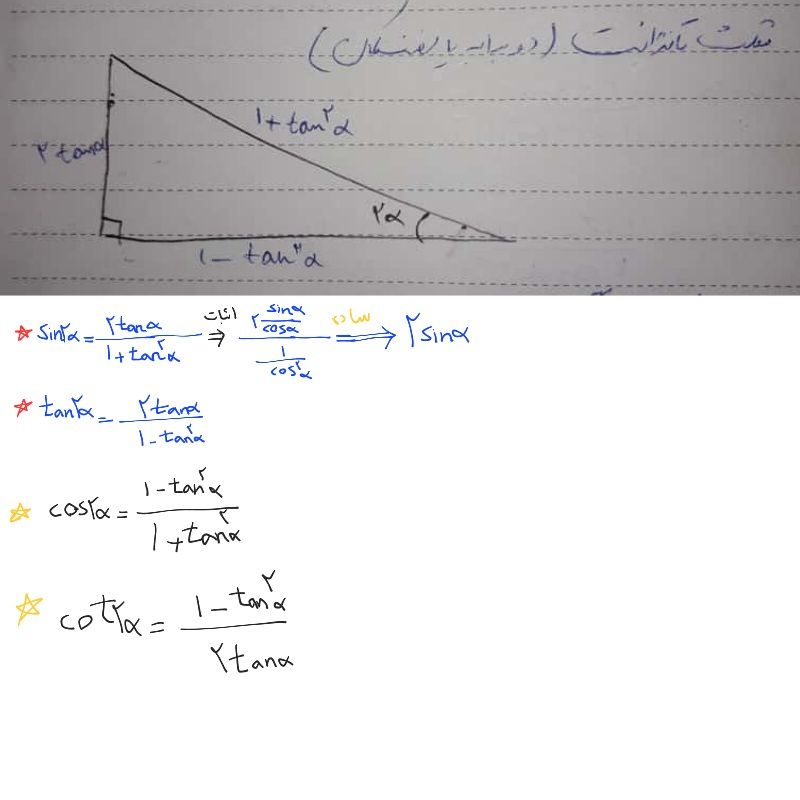 مثلث تانژانت (دو برابر با یعنی کمان)
1+ tan²α
۲ tanα
۲α
1 - tan²α
sin۲α = ۲tanα / 1+tan²α ⇒ اثبات ۲ sinα/cosα / 1/cos²α ⟹ ساده ۲ sinα
tan۲α = ۲tanα / 1-tan²α
cos۲α = 1-tan²α / 1+tan²α
cot۲α = 1-tan²α / ۲tanα